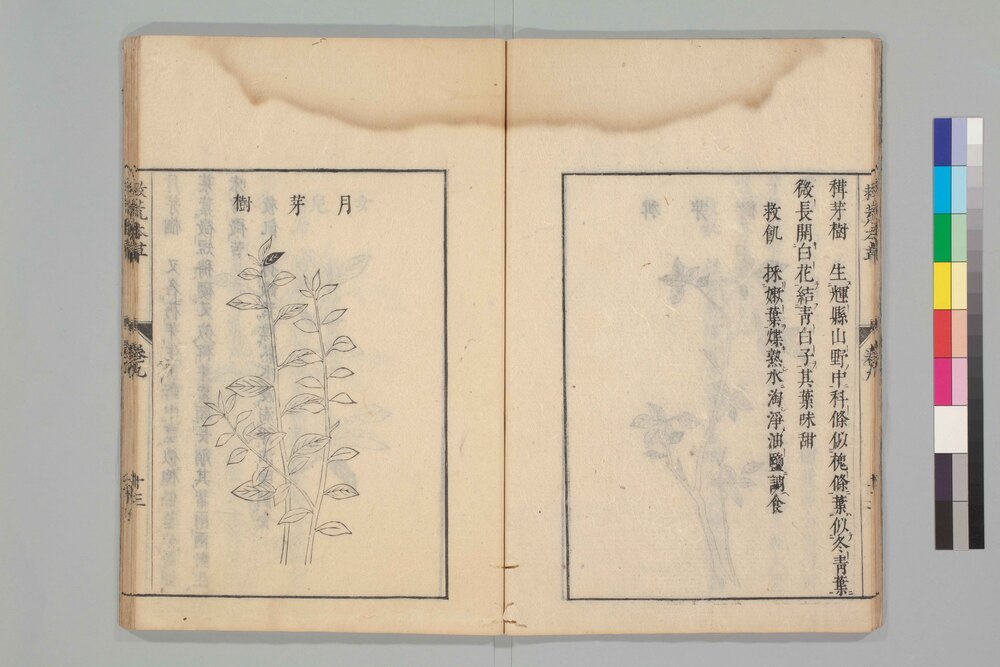 稕芽樹 生輝縣山野中科條似槐條葉似冬青葉
微長開白花結青白子其葉味甜
救飢 採嫩葉煠熟水淘淨油鹽調食
月芽樹
救荒本草
卷九
十三